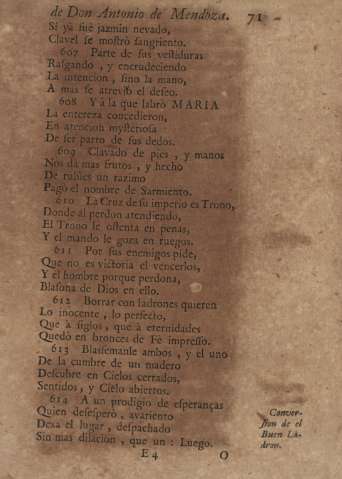 de Don Antonio de Mendoza. 71
Si ya fuè jazmin nevado,
Clavel se mostrò sangriento.
607 Parte de sus vestiduras
Rasgando, y encrudeciendo
La intencion, sino la mano,
A mas se atreviò el deseo.
608 Y à la que labrò MARIA
La entereza concedieron,
En atencion mysteriosa
De ser parto de sus dedos.
609 Clavado de pies, y manos
Nos dà mas frutos, y hecho
De rubies un razimo
Pagò el nombre de Sarmiento.
610 La Cruz de su imperio es Trono,
Donde al perdon atendiendo,
El Trono se ostenta en penas,
Y el mando se goza en ruegos.
611 Por sus enemigos pide,
Que no es victoria el vencerlos,
Y el hombre porque perdona,
Blasona de Dios en esso.
612 Borrar con ladrones quieren
Lo inocente, lo perfecto,
Que à siglos, que à eternidades
Quedò en bronces de Fe impresso.
613 Blassemanle ambos, y el uno
De la cumbre de un madero
Descubre en Cielos cerrados,
Sentidos, y Cielo abiertos.
614 A un prodigio de esperanças
Quien desesperò, avariento
Dexa el lugar, despachado
Sin mas dilacion, que un: Luego.
Conver-
sion de el
Buen La-
dron.
E 4 O